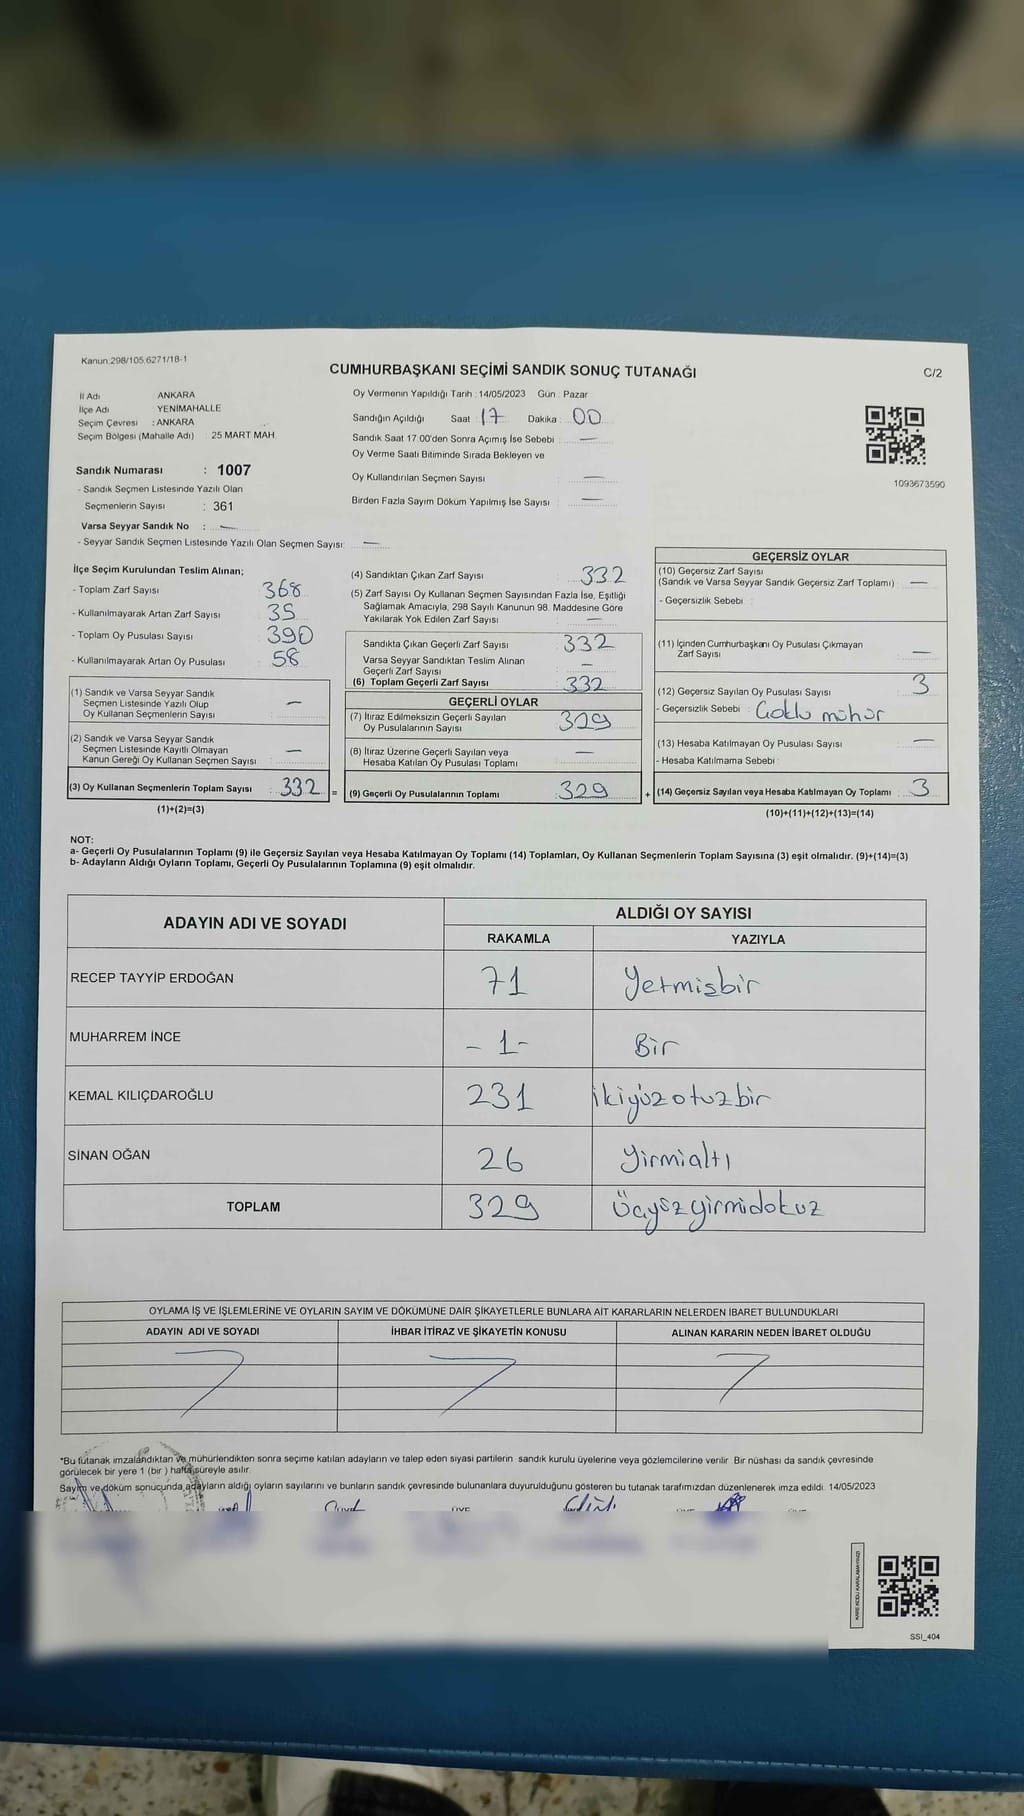 Kanun:298/105.6271/18-1
CUMHURBAŞKANI SEÇİMİ SANDIK SONUÇ TUTANAĞI
C/2
İl Adı ANKARA
İlçe Adı YENİMAHALLE
Seçim Çevresi : ANKARA
Seçim Bölgesi (Mahalle Adı) : 25 MART MAH.
Oy Vermenin Yapıldığı Tarih : 14/05/2023 Gün : Pazar
Sandığın Açıldığı Saat 17 Dakika : 00
Sandık Saat 17.00'den Sonra Açımış İse Sebebi : —
Oy Verme Saati Bitiminde Sırada Bekleyen ve
Oy Kullandırılan Seçmen Sayısı —
Birden Fazla Sayım Döküm Yapılmış İse Sayısı : —
1093673590
Sandık Numarası : 1007
- Sandık Seçmen Listesinde Yazılı Olan
Seçmenlerin Sayısı : 361
Varsa Seyyar Sandık No : —
- Seyyar Sandık Seçmen Listesinde Yazılı Olan Seçmen Sayısı: —
İlçe Seçim Kurulundan Teslim Alınan;
- Toplam Zarf Sayısı 368
- Kullanılmayarak Artan Zarf Sayısı 35
- Toplam Oy Pusulası Sayısı : 390
- Kullanılmayarak Artan Oy Pusulası : 58
(1) Sandık ve Varsa Seyyar Sandık
Seçmen Listesinde Yazılı Olup
Oy Kullanan Seçmenlerin Sayısı —
(2) Sandık ve Varsa Seyyar Sandık
Seçmen Listesinde Kayıtlı Olmayan
Kanun Gereği Oy Kullanan Seçmen Sayısı : —
(3) Oy Kullanan Seçmenlerin Toplam Sayısı : 332 =
(1)+(2)=(3)
(4) Sandıktan Çıkan Zarf Sayısı : 332
(5) Zarf Sayısı Oy Kullanan Seçmen Sayısından Fazla İse, Eşitliği
Sağlamak Amacıyla, 298 Sayılı Kanunun 98. Maddesine Göre
Yakılarak Yok Edilen Zarf Sayısı : —
Sandıkta Çıkan Geçerli Zarf Sayısı : 332
Varsa Seyyar Sandıktan Teslim Alınan
Geçerli Zarf Sayısı —
(6) Toplam Geçerli Zarf Sayısı : 332
GEÇERLİ OYLAR
(7) İtiraz Edilmeksizin Geçerli Sayılan
Oy Pusulalarının Sayısı 329
(8) İtiraz Üzerine Geçerli Sayılan veya
Hesaba Katılan Oy Pusulası Toplamı —
(9) Geçerli Oy Pusulalarının Toplamı : 329 +
GEÇERSİZ OYLAR
(10) Geçersiz Zarf Sayısı
(Sandık ve Varsa Seyyar Sandık Geçersiz Zarf Toplamı) : —
- Geçersizlik Sebebi :
(11) İçinden Cumhurbaşkanı Oy Pusulası Çıkmayan
Zarf Sayısı —
(12) Geçersiz Sayılan Oy Pusulası Sayısı 3
- Geçersizlik Sebebi : Çoklu mühür
(13) Hesaba Katılmayan Oy Pusulası Sayısı —
- Hesaba Katılmama Sebebi :
(14) Geçersiz Sayılan veya Hesaba Katılmayan Oy Toplamı : 3
(10)+(11)+(12)+(13)=(14)
NOT:
a- Geçerli Oy Pusulalarının Toplamı (9) ile Geçersiz Sayılan veya Hesaba Katılmayan Oy Toplamı (14) Toplamları, Oy Kullanan Seçmenlerin Toplam Sayısına (3) eşit olmalıdır. (9)+(14)=(3)
b- Adayların Aldığı Oyların Toplamı, Geçerli Oy Pusulalarının Toplamına (9) eşit olmalıdır.
ADAYIN ADI VE SOYADI ALDIĞI OY SAYISI
RAKAMLA YAZIYLA
RECEP TAYYİP ERDOĞAN 71 Yetmişbir
MUHARREM İNCE - 1 - Bir
KEMAL KILIÇDAROĞLU 231 ikiyüzotuzbir
SİNAN OĞAN 26 Yirmialtı
TOPLAM 329 Üçyüzyirmidokuz
OYLAMA İŞ VE İŞLEMLERİNE VE OYLARIN SAYIM VE DÖKÜMÜNE DAİR ŞİKAYETLERLE BUNLARA AİT KARARLARIN NELERDEN İBARET BULUNDUKLARI
ADAYIN ADI VE SOYADI İHBAR İTİRAZ VE ŞİKAYETİN KONUSU ALINAN KARARIN NEDEN İBARET OLDUĞU
*Bu tutanak imzalandıktan ve mühürlendikten sonra seçime katılan adayların ve talep eden siyasi partilerin sandık kurulu üyelerine veya gözlemcilerine verilir. Bir nüshası da sandık çevresinde
görülecek bir yere 1 (bir ) hafta süreyle asılır.
Sayım ve döküm sonucunda adayların aldığı oyların sayılarını ve bunların sandık çevresinde bulunanlara duyurulduğunu gösteren bu tutanak tarafımızdan düzenlenerek imza edildi. 14/05/2023
KARE KODU KARALAMAYINIZ!
SSI_404